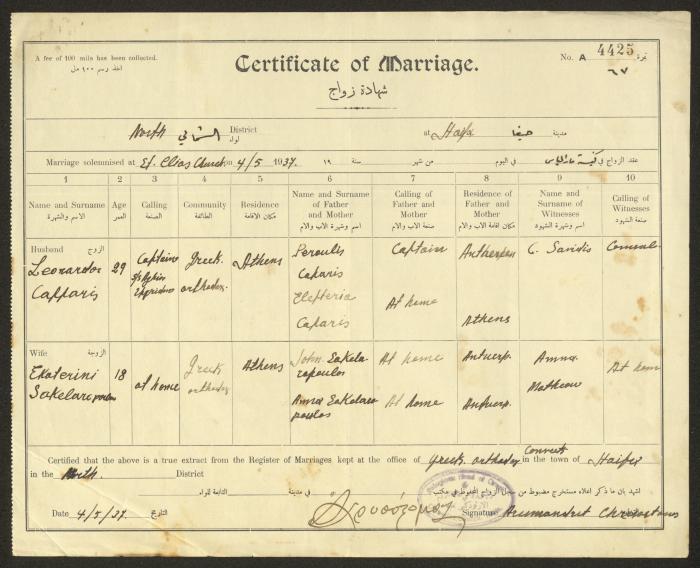 A fee of 100 mils has been collected.
Certificate of Marriage.
No. A 4425 نمرة
٦٧
شهادة زواج
North District
لواء
at Haifa حيفا مدينة
Marriage solemnised at St. Elias Church on 4/5/1937. ١٩ سنة من شهر في اليوم عقد الزواج في
1 2 3 4 5 6 7 8 9 10
Name and Surname Age Calling Community Residence Name and Surname of Father and Mother Calling of Father and Mother Residence of Father and Mother Name and Surname of Witnesses Calling of Witnesses
الاسم والشهرة العمر الصنعة الطائفة مكان الاقامة اسم وشهرة الاب والام صنعة الاب والام مكان اقامة الاب والام اسم وشهرة الشهود صنعة الشهود
Husband الزوج
Leonardos Capparis 29 Captain Greek orthodox. Athens
Caparis Captain C. Savidis Consul
Elefteria Caparis At home Athens
Wife الزوجة
Ekaterini 18 at home Greek orthodox Athens John Sakelaropoulos At home Antwerp. Anna Matheou At home
Anna Sakelaropoulos At home Antwerp.
Certified that the above is a true extract from the Register of Marriages kept at the office of Greek orthodox Convent in the town of Haifa
in the North. District
اشهد بان ما ذكر اعلاه مستخرج مضبوط من سجل الزواج المحفوظ في مكتب
في مدينة التابعة للواء
Date 4/5/37. التاريخ Signature